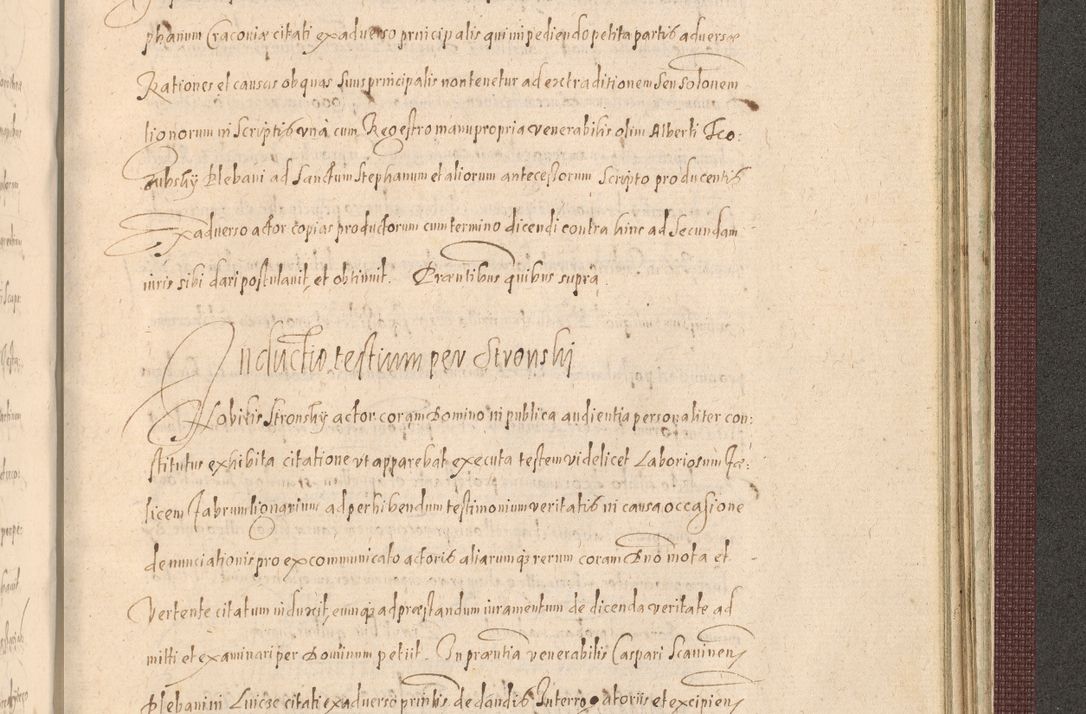 phanum Cracoviæ citati ex adverso principalis qui impediendo petita partis adversæ
Rationes et causas ob quas suus principalis non tenetur ad extraditionem
tionorum in Scriptis una cum Regestro manu propria venerabilis olim Alberti
Plebani ad Sanctum Stephanum et aliorum antecessorum Scripto producentis
Ex adverso actor copias productorum cum termino dicendi contra hinc ad Secundam
iuris sibi dari postulavit, et obtinuit. Præntibus quibus supra.
Inductio testium per Stronski
Nobilis Stronsky actor coram Domino in publica audientia personaliter con:
stitutus exhibita citatione ut apparebat executa testem videlicet Laboriosum Fœ:
licem ad perhibendum testimonium veritatis in causa occasione
denunciationis pro excommunicato actoris aliarumq3 rerum coram Dno mota et
Vertente citatum induxit, eumq3 ad præstandum iuramentum de dicenda veritate ad
mitti et examinari per Dominum petiit. In præntia venerabilis Caspari
Plebani in citati ex adverso prinlis de dandis Interrogatoriis et excipien